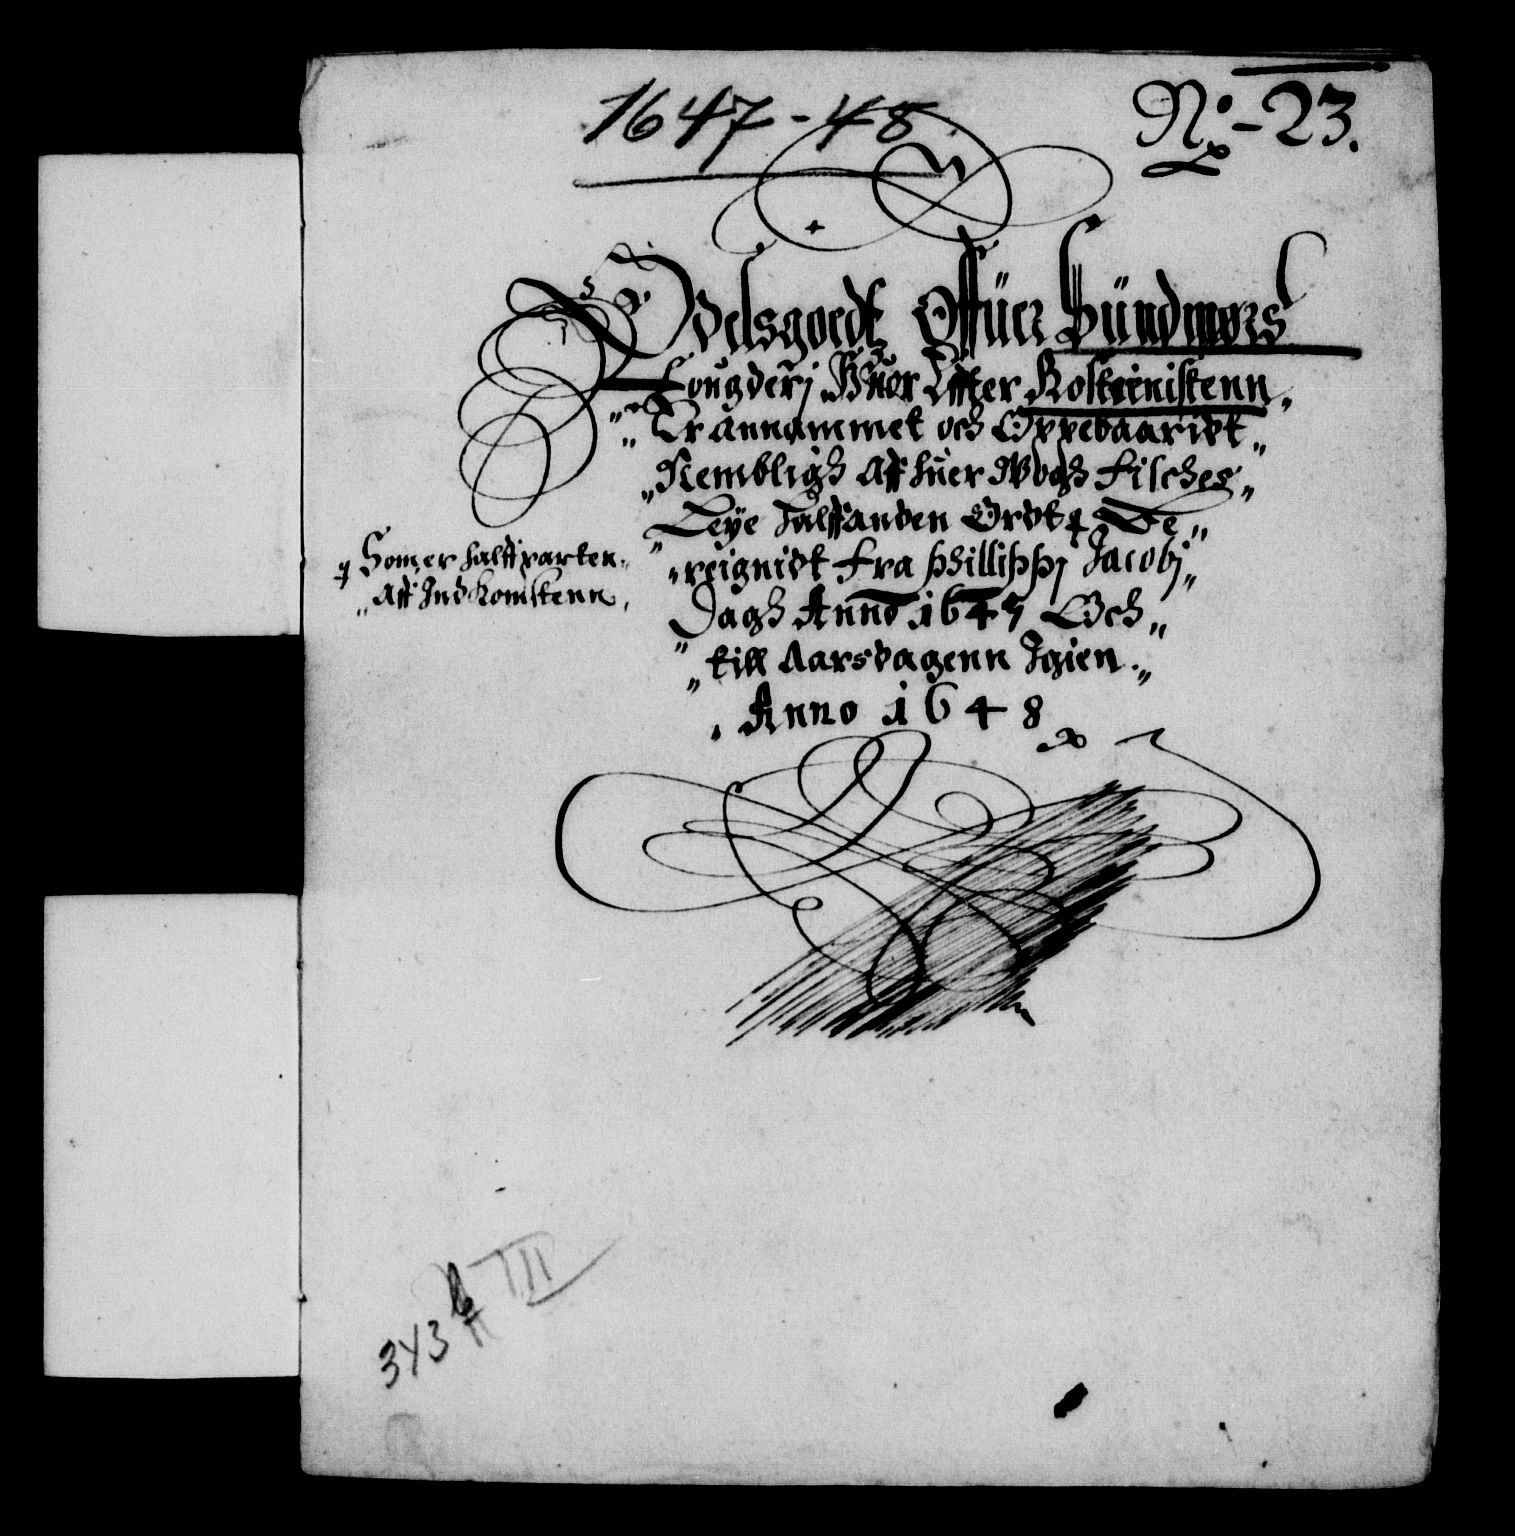 1647-48.
No - 23.
Odelsgoedtz Offüer Sündmørs
Fougderj Huor Effter Rosteinistenn,
Er Annammet och Oppebaaridt
Nembligh Aff huer Wogh Fisches
Leye halffanden Ordt ꝗ Be
reignidt fra Phillippj Jacobj
Dagh Anno 1647 Och
till Aarsdagenn Igien.
Anno 1648
ꝗ Som er halffparten
Aff Indkomstenn,
343 b
III